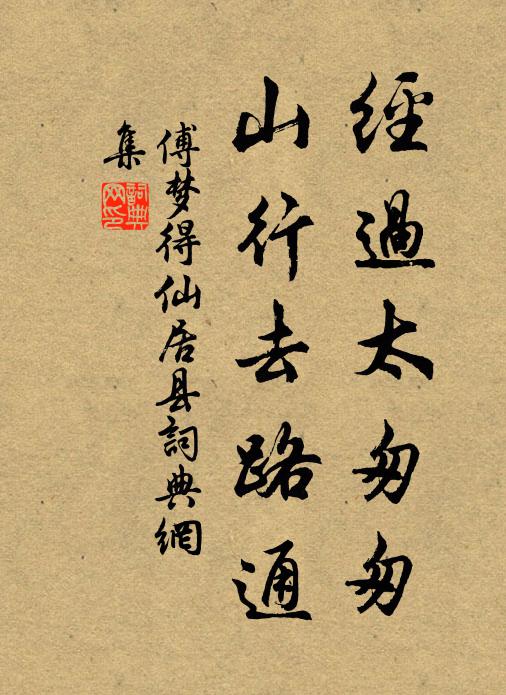 經過太匆匆
山行去路通
傅梦得仙居县詞典網
集
詞典
网印